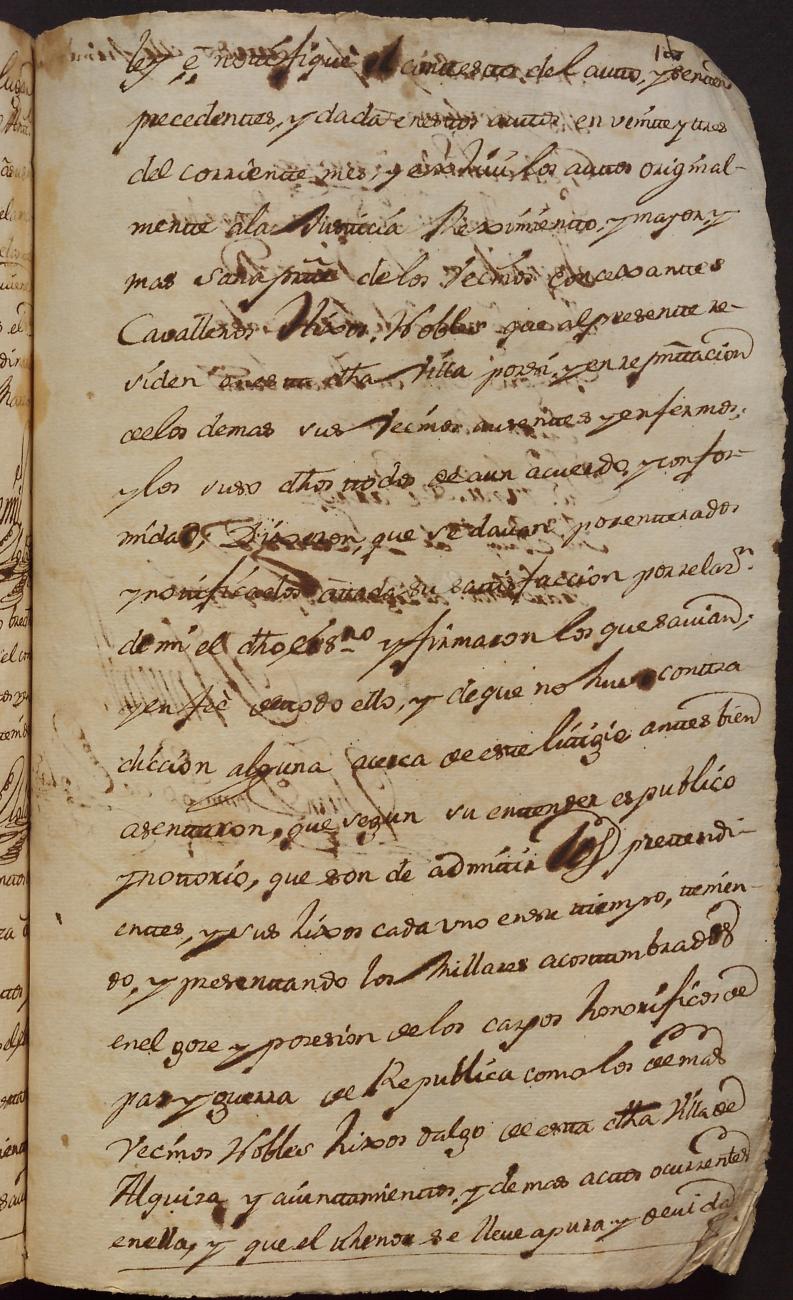 ley è notifique el contesto del auto, y senten
precedentes, y dada en estos autos en veinte y tres
del corriente mes, y los autos original-
mente ala Justicia Reximiento, y mayor y
mas sana pte de los Vecinos concexantes
Cavalleros Hixos, Nobles que al presente re-
siden en esta dha Villa por sí, y en represntacion
de los demas sus Vecinos ausentes y enfermos,
y los suso dhos todos de a un acuerdo, y confor-
midad, Dixeron, que se davan por enterados
y notificados a toda su satisfaccion por relazn
de mi el dho essno y firmaron los que savian,
y en feè de todo ello, y de que no huvo contra
diccion alguna acerca de este litigio antes bien
asentaron, que segun su entender es publico
y nottorio, que son de admitir los pretendi-
entes, y sus hixos cada uno en su tiempo, tenien-
do, y presentando los Millares acostumbrados
en el goze y posesion de los cargos honorificos de
paz y guerra de Republica como los demas
Vecinos Nobles hixos dalgo de esta dha Villa de
Alquiza y aiuntamientos, y demas actos ocurrentes
en ella, y que el thenor se lleve a pura y devida